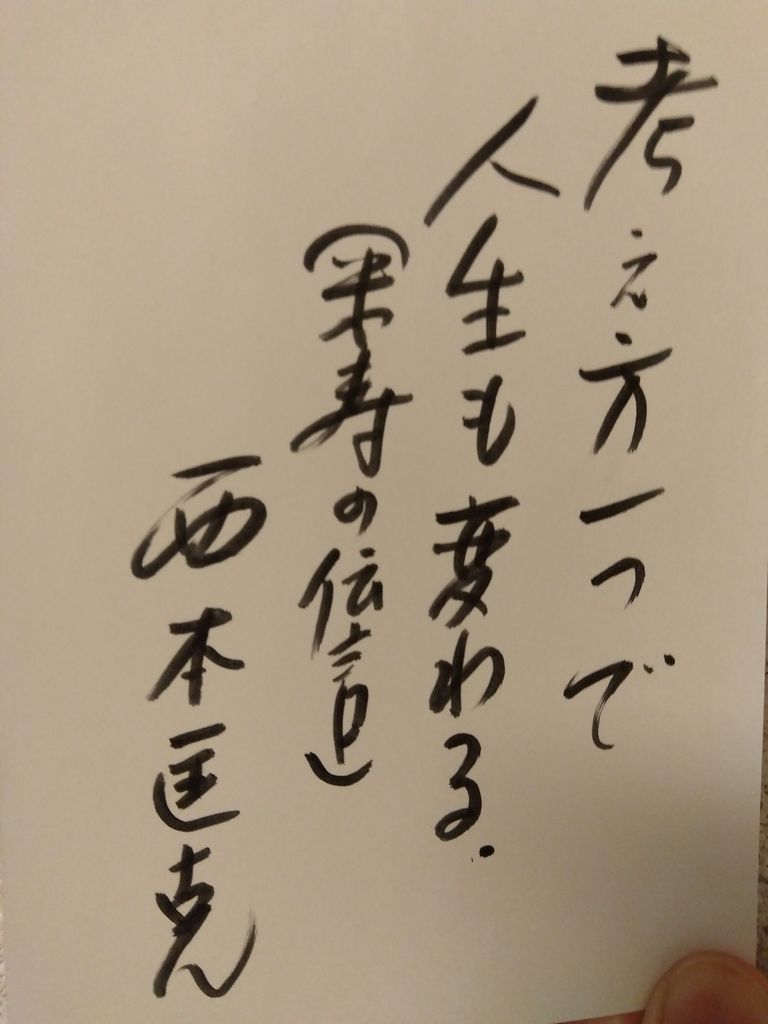 考え方一つで
人生も変わる.
(米寿の伝言)
西本匡克